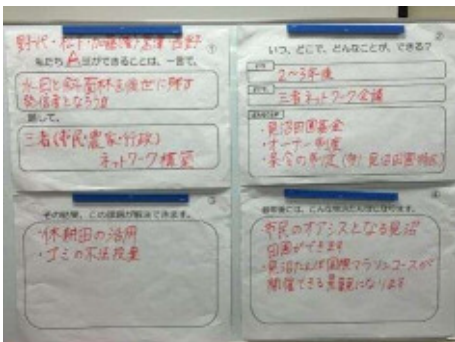 ①
私たち A 班ができることは、一言で、
水田と斜面林を後世に残す
発信者となろう!!
訳して、
三者(市民・農家・行政)
ネットワーク構築
②
いつ、どこで、どんなことが、できる?
2〜3年後
三者ネットワーク会議
・見沼田園基金
・オーナー制度
・条令の制定(例)見沼田園特区
③
その結果、この課題が解決できます。
・休耕田の活用
・ゴミの不法投棄
④
数年後には、こんな見沼たんぼになります。
市民のオアシスとなる見沼
田園ができます
・見沼たんぼ国際マラソンコースが
開催できる景観になります